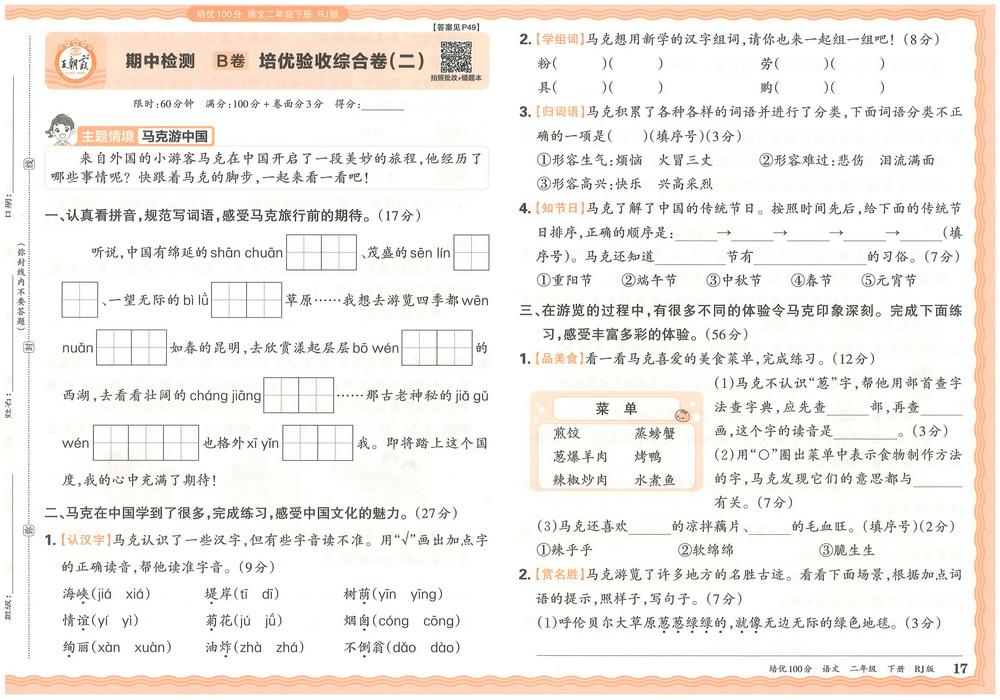 培优100分 语文二年级下册 RJ版
【答案见P49】
王朝霞
期中检测 B卷 培优验收综合卷(二)
拍照批改+错题本
限时:60分钟 满分:100分+卷面分3分 得分:
主题情境 马克游中国
来自外国的小游客马克在中国开启了一段美妙的旅程,他经历了
哪些事情呢? 快跟着马克的脚步,一起来看一看吧!
一、认真看拼音,规范写词语,感受马克旅行前的期待。(17分)
听说,中国有绵延的shān chuān 、茂盛的sēn lín
、一望无际的bì lǜ 草原……我想去游览四季都wēn
nuǎn 如春的昆明,去欣赏漾起层层bō wén 的
西湖,去看看壮阔的cháng jiāng ……那古老神秘的jiǎ gǔ
wén 也格外xī yǐn 我。即将踏上这个国
度,我的心中充满了期待!
二、马克在中国学到了很多,完成练习,感受中国文化的魅力。(27分)
1.【认汉字】马克认识了一些汉字,但有些字音读不准。用“√”画出加点字
的正确读音,帮他读准字音。(9分)
海峡(jiá xiá) 堤岸(tī dī) 树荫(yīn yīng)
情谊(yí yì) 菊花(jú jǘ) 烟囱(cóng cōng)
绚丽(xàn xuàn) 油炸(zhà zhá) 不倒翁(dǎo dào)
2.【学组词】马克想用新学的汉字组词,请你也来一起组一组吧! (8分)
粉( )( ) 劳( )( )
具( )( ) 购( )( )
3.【归词语】马克积累了各种各样的词语并进行了分类,下面词语分类不正
确的一项是( )(填序号)(3分)
①形容生气:烦恼 火冒三丈 ②形容难过:悲伤 泪流满面
③形容高兴:快乐 兴高采烈
4.【知节日】马克了解了中国的传统节日。按照时间先后,给下面的传统节
日排序,正确的顺序是: → → → → (填
序号)。马克还知道 节有 的习俗。(7分)
①重阳节 ②端午节 ③中秋节 ④春节 ⑤元宵节
三、在游览的过程中,有很多不同的体验令马克印象深刻。完成下面练
习,感受丰富多彩的体验。(56分)
1.【品美食】看一看马克喜爱的美食菜单,完成练习。(12分)
菜 单
煎饺 蒸螃蟹
葱爆羊肉 烤鸭
辣椒炒肉 水煮鱼
(1)马克不认识“葱”字,帮他用部首查字
法查字典,应先查 部,再查
画,这个字的读音是 。(3分)
(2)用“○”圈出菜单中表示食物制作方法
的字,马克发现它们的意思都与
有关。(7分)
(3)马克还喜欢 的凉拌藕片、 的毛血旺。(填序号)(2分)
①辣乎乎 ②软绵绵 ③脆生生
2.【赏名胜】马克游览了许多地方的名胜古迹。看看下面场景,根据加点词
语的提示,照样子,写句子。(7分)
(1)呼伦贝尔大草原葱葱绿绿的,就像无边无际的绿色地毯。(3分)
培优100分 语文 二年级 下册 RJ版 17
线
(弥封线内不要答题)
封
姓名:
班级: